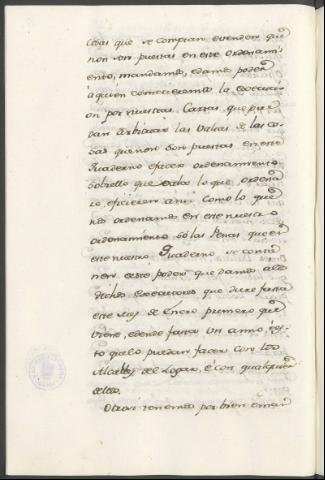 cosas que se compran e venden que
non son puestas en este ordenami
ento, mandamos, e damos poder
á quien cometieremos la execuci
on por nuestras Cartas, que pue
dan arbitrar las valias de las co
sas que non son puestas en este
Quaderno e facer ordenamiento
sobrello que vala lo que ordena
re, e ficieren ansi como lo que
nos ordenamos en este nuestro
ordenamiento so las Penas que en
este nuestro Quaderno se contie
nen e este poder que damos a los
dichos Executores que dure fasta
este mes de Enero primero que
viene, e dende fasta un año, i es
to que lo puedan facer con los
Alcalles del Logar, é con qualquier
dellos.
Otrosi tenemos por bien e man